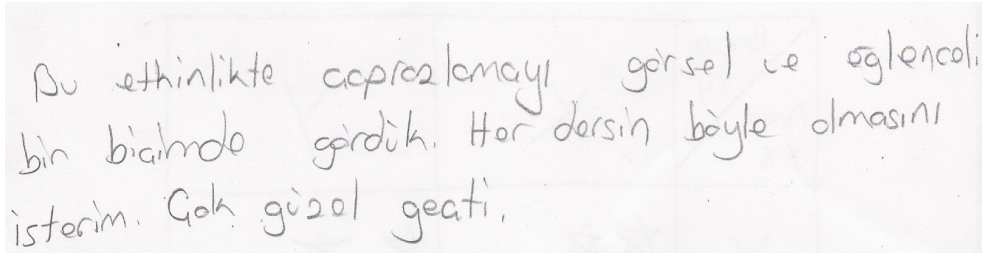 Bu etkinlikte çaprazlamayı görsel ve eğlenceli
bir biçimde gördük. Her dersin böyle olmasını
isterim. Çok güzel geçti.